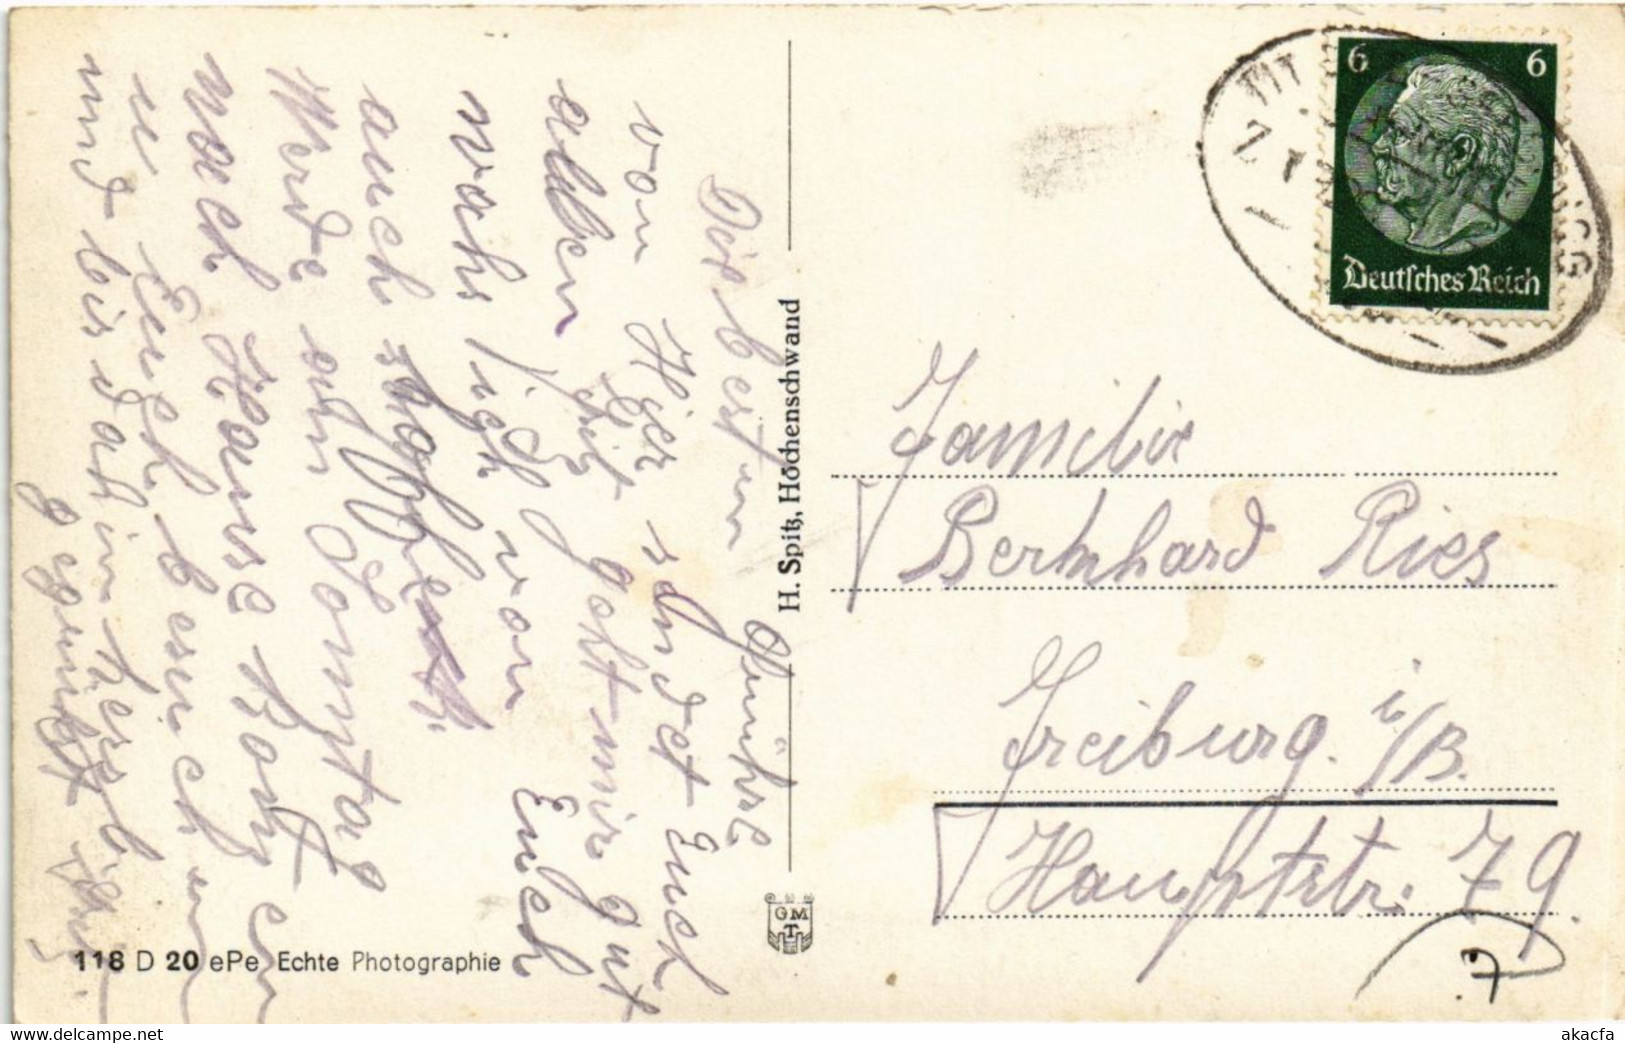 Die besten Grüße
von Hier sendet Euch
allen Geht mir gut
was ich von Euch
auch hoffe.
Werde am Sonntag
nach Hause
u Euch besuchen
und bis dahin herzl.
gegrüßt
H. Spitz, Höchenschwand
GMT
118 D 20 ePe Echte Photographie
6 6
Deutsches Reich
Z
Familie
Bernhard Ries
Freiburg. i/B.
Hauptstr. 79.
www.delcampe.net
akacfa